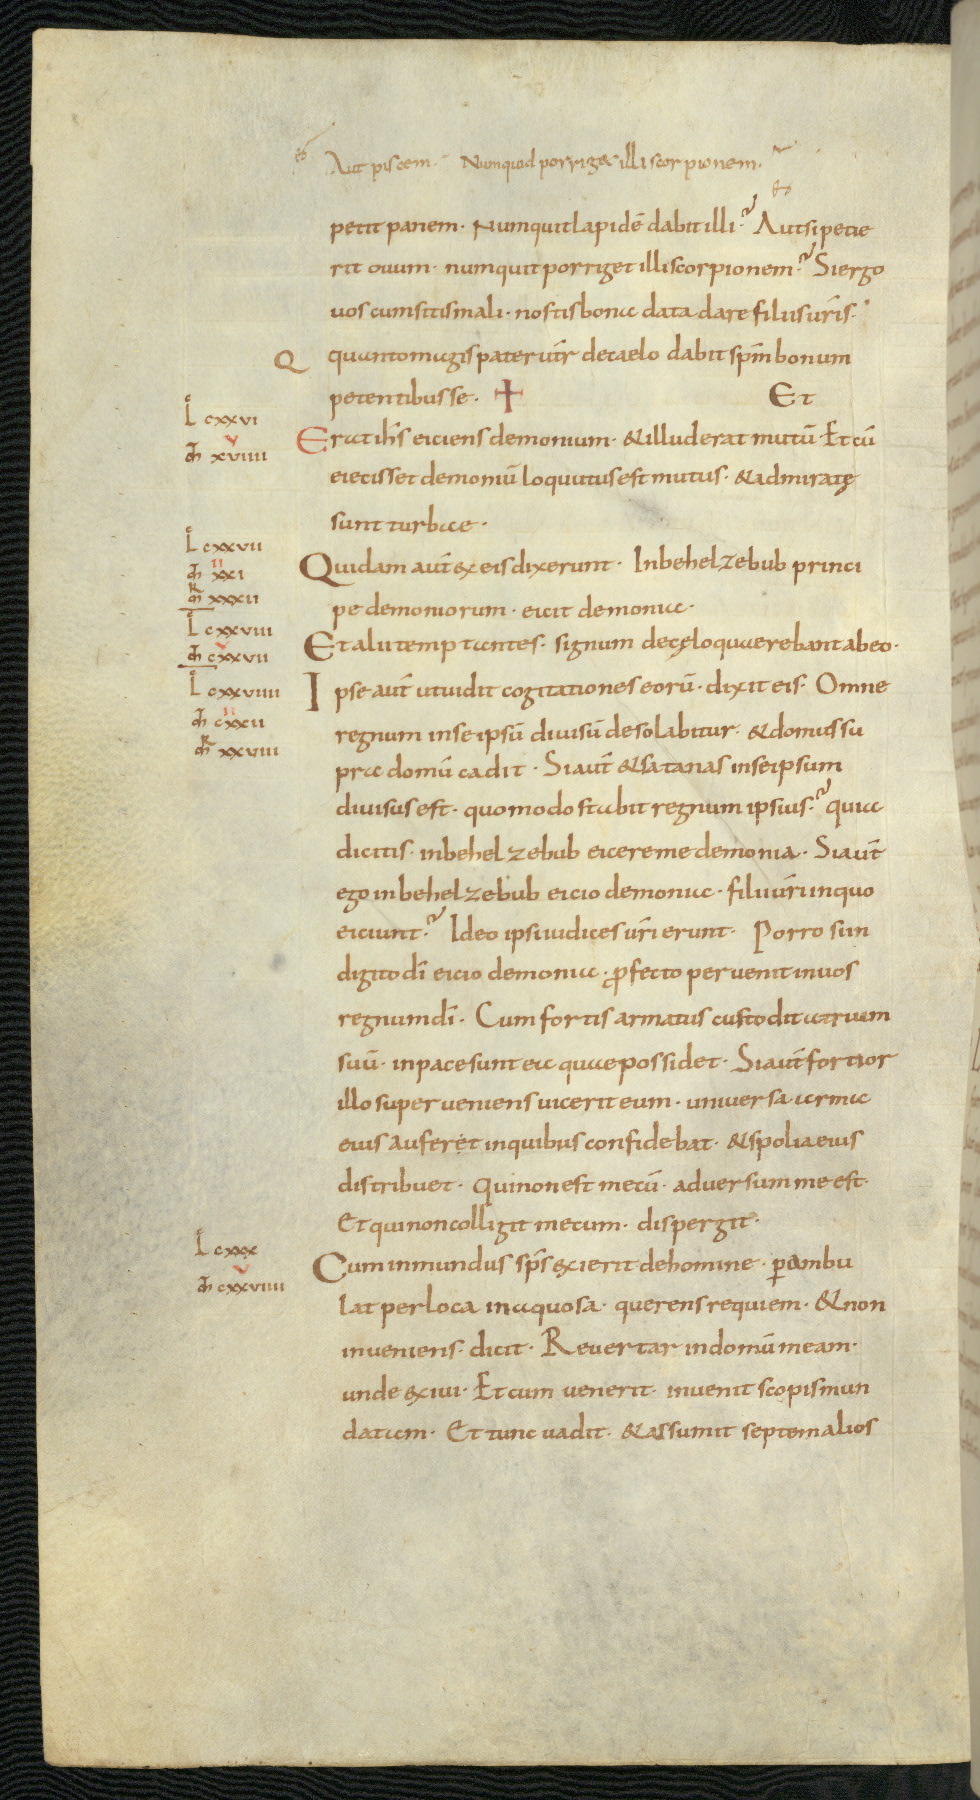 Aut piscem. Numquid porriget illi scorpionem.
petit panem. Numquit lapidē dabit illi? Aut si petie
rit ouum. numquit porriget illi scorpionem? Si ergo
uos cum sitis mali. nostis bona data dare filiis uris.
Q quanto magis pater ur̄ de caelo dabit spm̄ bonum
petentibus se. + Et
L cxxvi
Erat ih̄s eiciens demonium. & illud erat mutū. Et cū
v
m̄ xviiii
eiecisset demoniū loquutus est mutus. & admiratę
sunt turbae.
L cxxvii
Quidam aut̄ ex eis dixerunt. In behelzebub princi
ii
m̄ xxi
m̄r xxxii
pe demoniorum. eicit demonia.
L cxxviii
Et alii temptantes. signum de cęlo quaerebant ab eo.
v
m̄ cxxvii
L cxxviiii
Ipse aut̄ ut uidit cogitationes eorū. dixit eis. Omne
ii
m̄ cxxii
regnum in se ipsū diuisū desolabitur. & domus su
mr̄ xxviii
pra domū cadit. Si aut̄ & satanas in se ipsum
diuisus est. quomodo stabit regnum ipsius? quia
dicitis. in behelzebub eicere me demonia. Si aut̄
ego in behelzebub eicio demonia. filii ur̄i in quo
eiciunt? Ideo ipsi iudices ur̄i erunt. Porro si in
digito dī eicio demonia. ꝓfecto peruenit in uos
regnum dī. Cum fortis armatus custodit atrium
suū. in pace sunt ea quae possidet. Si aut̄ fortior
illo superueniens uicerit eum. uniuersa arma
eius auferet in quibus confidebat. & spolia eius
distribuet. Qui non est mecū. aduersum me est.
Et qui non colligit mecum. dispergit.
L cxxx
Cum inmundus sps̄ exierit de homine. ꝑambu
v
m̄ cxxviiii
lat per loca inaquosa. querens requiem. & non
inueniens. dicit. Reuertar in domū meam.
unde exiui. Et cum uenerit. inuenit scopis mun
datam. Et tunc uadit. & assumit septem alios